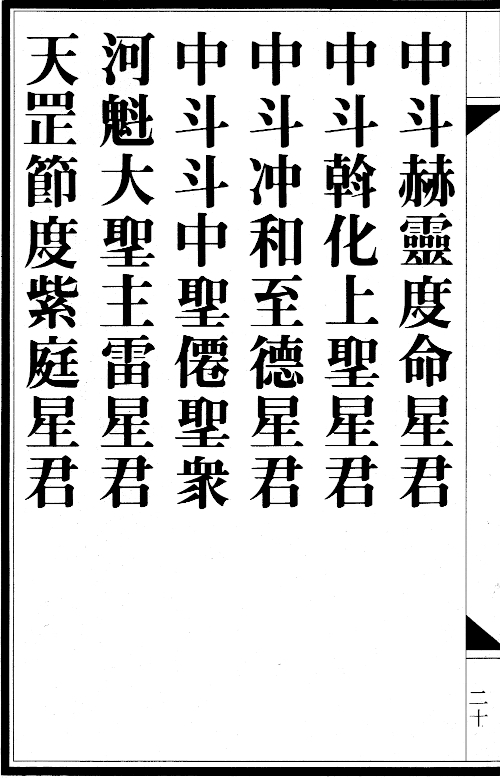 中斗赫靈度命星君
中斗斡化上聖星君
中斗冲和至德星君
中斗斗中聖僊聖衆
河魁大聖主雷星君
天罡節度紫庭星君
二十